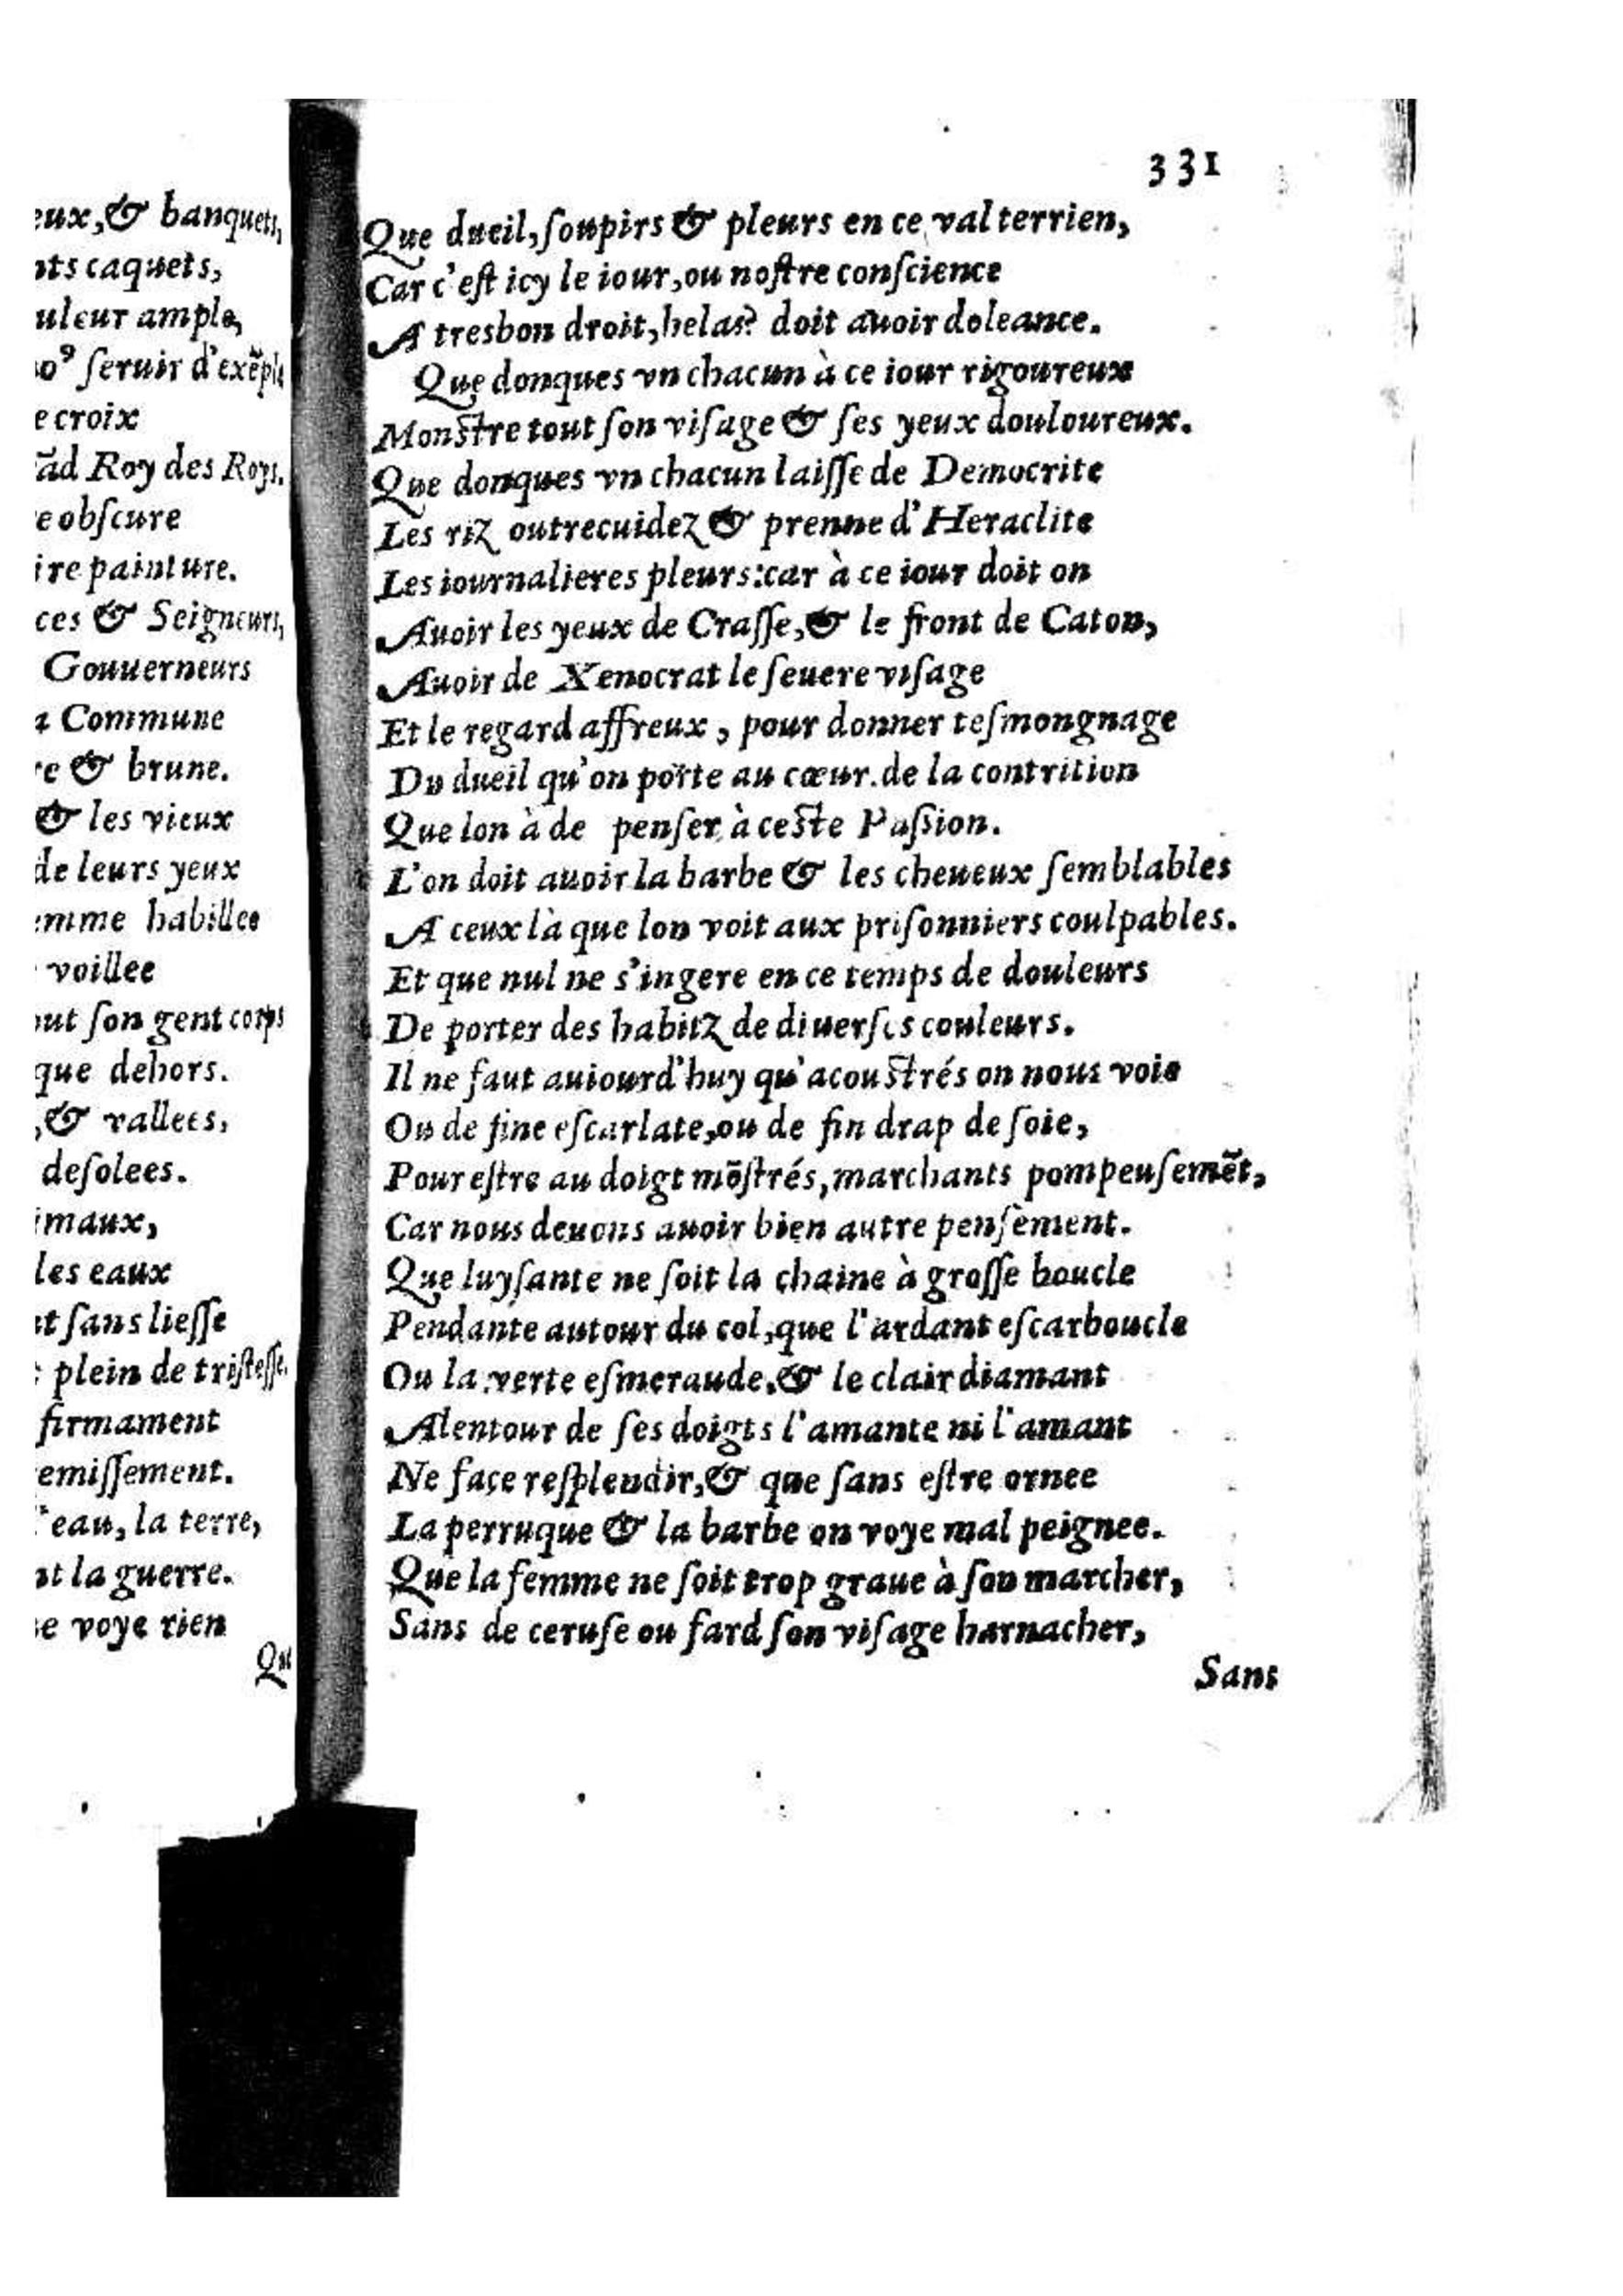 eux,& banquets,
nts caquets,
uleur ample,
no⁹ ſeruir d'exẽple
e croix
ãd Roy des Roys.
e obſcure
ire painture.
ces & Seigneurs,
Gouuerneurs
a Commune
re & brune.
& les vieux
de leurs yeux
emme habillee
voillee
out ſon gent corps
que dehors.
,& vallees,
deſolees.
imaux,
les eaux
nt ſans lieſſe
plein de triſteſſe.
firmament
emiſſement.
l'eau, la terre,
nt la guerre.
ne voye rien
Que
331
Que dueil, ſoupirs & pleurs en ce val terrien,
Car c'eſt icy le iour, ou noſtre conſcience
A tresbon droit, helas? doit auoir doleance.
Que donques vn chacun à ce iour rigoureux
Monſtre tout ſon viſage & ſes yeux douloureux.
Que donques vn chacun laiſſe de Democrite
Les riz outrecuidez & prenne d'Heraclite
Les iournalieres pleurs: car à ce iour doit on
Auoir les yeux de Craſſe, & le front de Caton,
Auoir de Xenocrat le ſeuere viſage
Et le regard affreux, pour donner teſmongnage
Du dueil qu'on porte au cœur. de la contrition
Que lon à de penſer à ceſte Paſſion.
L'on doit auoir la barbe & les cheueux ſemblables
A ceux là que lon voit aux priſonniers coulpables.
Et que nul ne s'ingere en ce temps de douleurs
De porter des habitz de diuerſes couleurs.
Il ne faut auiourd'huy qu'acouſtrés on nous voie
Ou de fine eſcarlate, ou de fin drap de ſoie,
Pour eſtre au doigt mõſtrés, marchants pompeuſemẽt,
Car nous deuons auoir bien autre penſement.
Que luyſante ne ſoit la chaine à groſſe boucle
Pendante autour du col, que l'ardant eſcarboucle
Ou la verte eſmeraude, & le clair diamant
Alentour de ſes doigts l'amante ni l'amant
Ne face reſplendir, & que ſans eſtre ornee
La perruque & la barbe on voye mal peignee.
Que la femme ne ſoit trop graue à ſon marcher,
Sans de ceruſe ou fard ſon viſage harnacher,
Sans